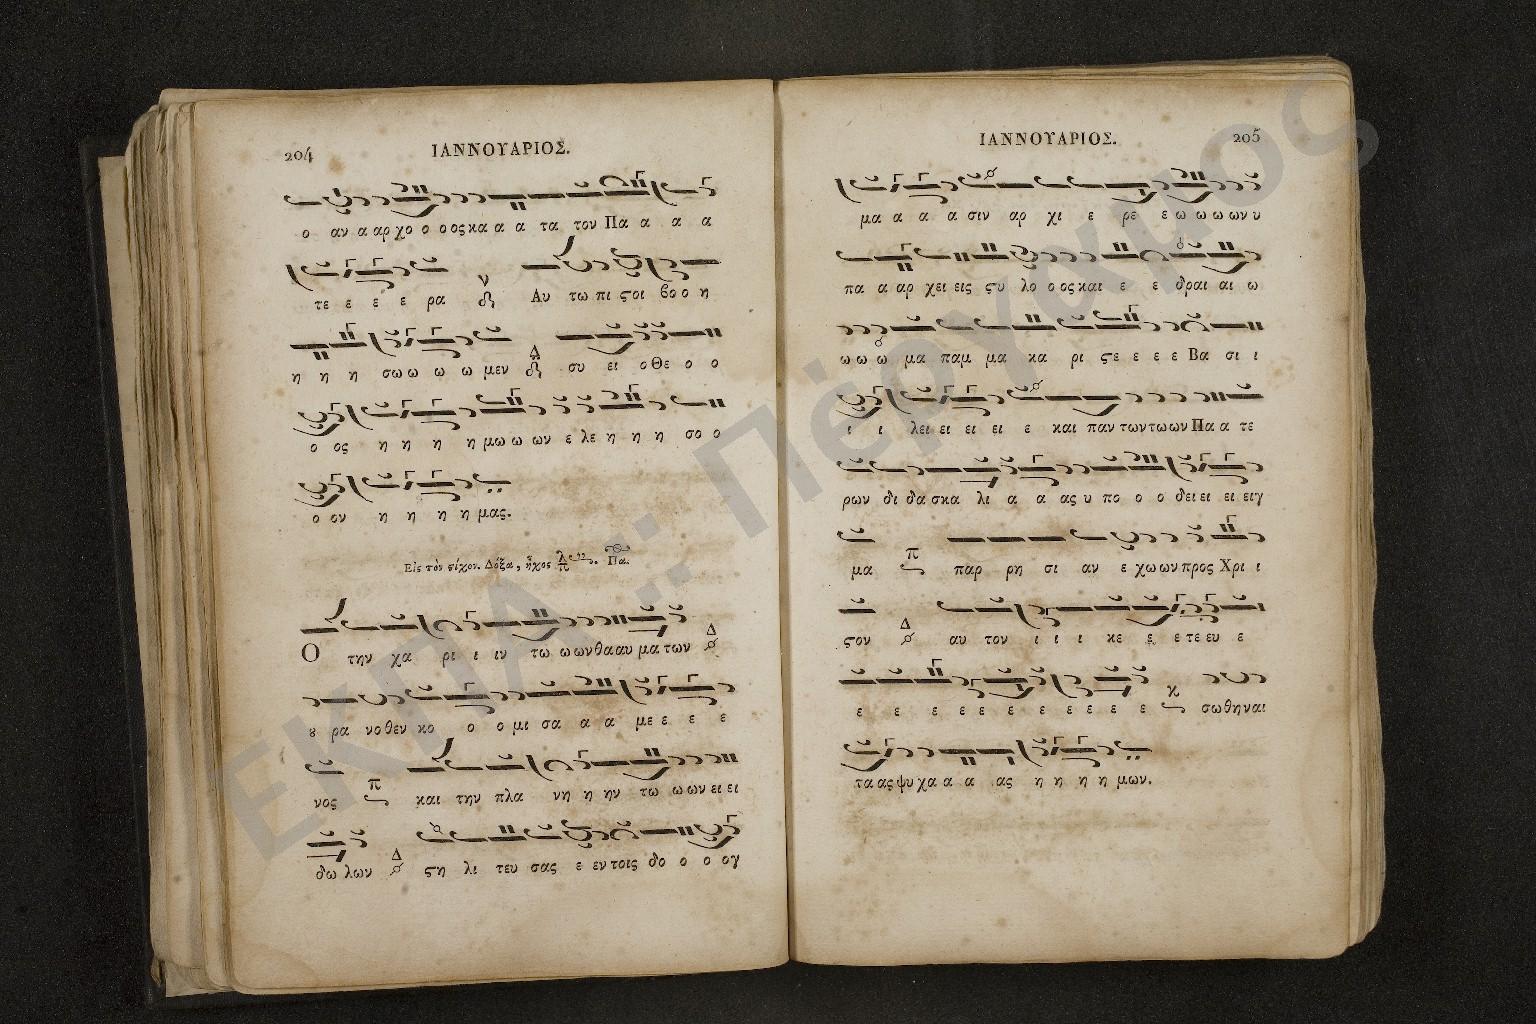 204
ΙΑΝΝΟΥΑΡΙΟΣ.
ο αν α αρ χο ο ο ος κα α α τα τον Πα α α α
τε ε ε ε ρα Αυ τω πι ϛοι βο ο η
η η η σω ω ω ω μεν Δ συ ει ο Θε ο ο
ο ος η η η η μω ω ων ε λε η η η σο ο
ο ον η η η η μας.
Εἰς τὸν ϛίχον. Δόξα, ἦχος Πα.
Ο την χα ρι ι ιν τω ω ων θα αυ μα των Δ
ȣ ρα νο θεν κο ο ο μι σα α α με ε ε ε
νος π και την πλα νη η ην τω ω ων ει ει
δω λων Δ ϛη λι τευ σας ε εν τοις δο ο ο ογ
ΙΑΝΝΟΥΑΡΙΟΣ.
205
μα α α α σιν αρ χι ε ρε ε ω ω ω ων υ
πα α αρ χει εις ϛυ λο ο ος και ε ε δραι αι ω
ω ω ω μα παμ μα κα ρι ϛε ε ε ε Βα σι ι
ι ι λει ει ει ει ε και παν των τω ων Πα α τε
ρων δι δα σκα λι α α ας υ πο ο ο δει ει ει ειγ
μα π παρ ρη σι αν ε χω ων προς Χρι ι
ϛον Δ αυ τον ι ι ι κε ε ε τε ευ ε
ε ε ε ε ε ε ε ε ε ε ε κ σω θη ναι
τα ας ψυ χα α α ας η η η η μων.
ΕΚΠΑ :: Πέργαμος